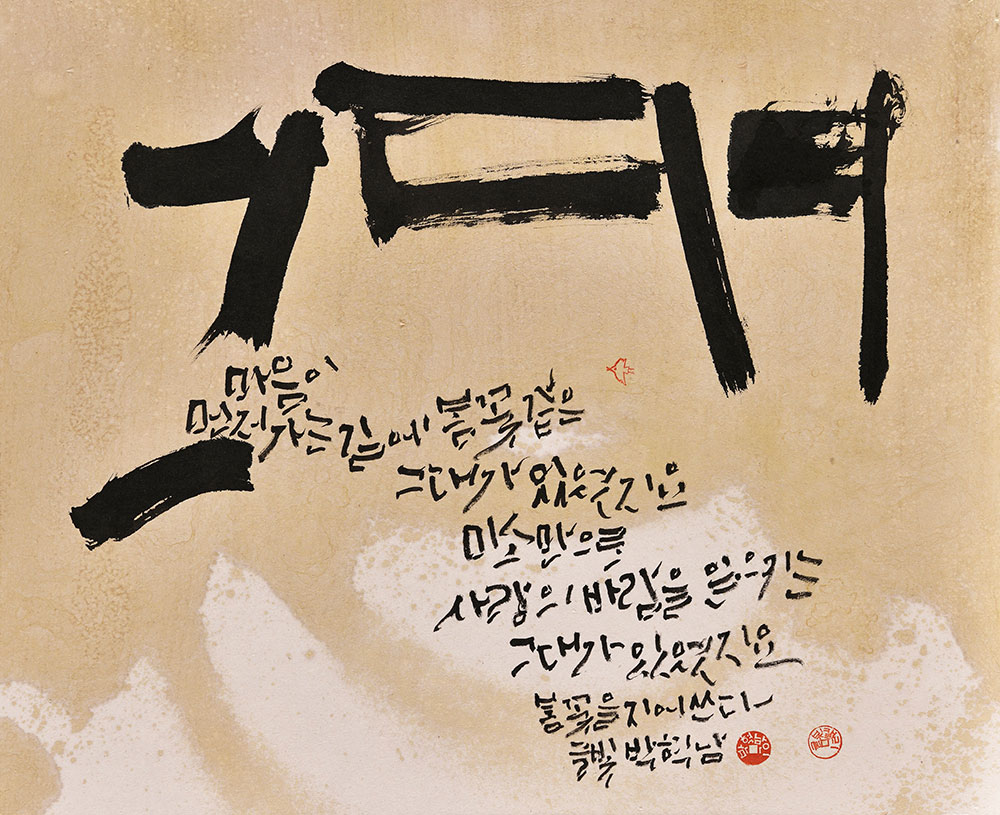 그대여
마음이
먼저 가는 길에 봄꽃 같은
그대가 있었지요
미소만으로
사람의 바람을 일으키는
그대가 있었지요
봄꽃을 지어 쓰다
들빛 박혁남